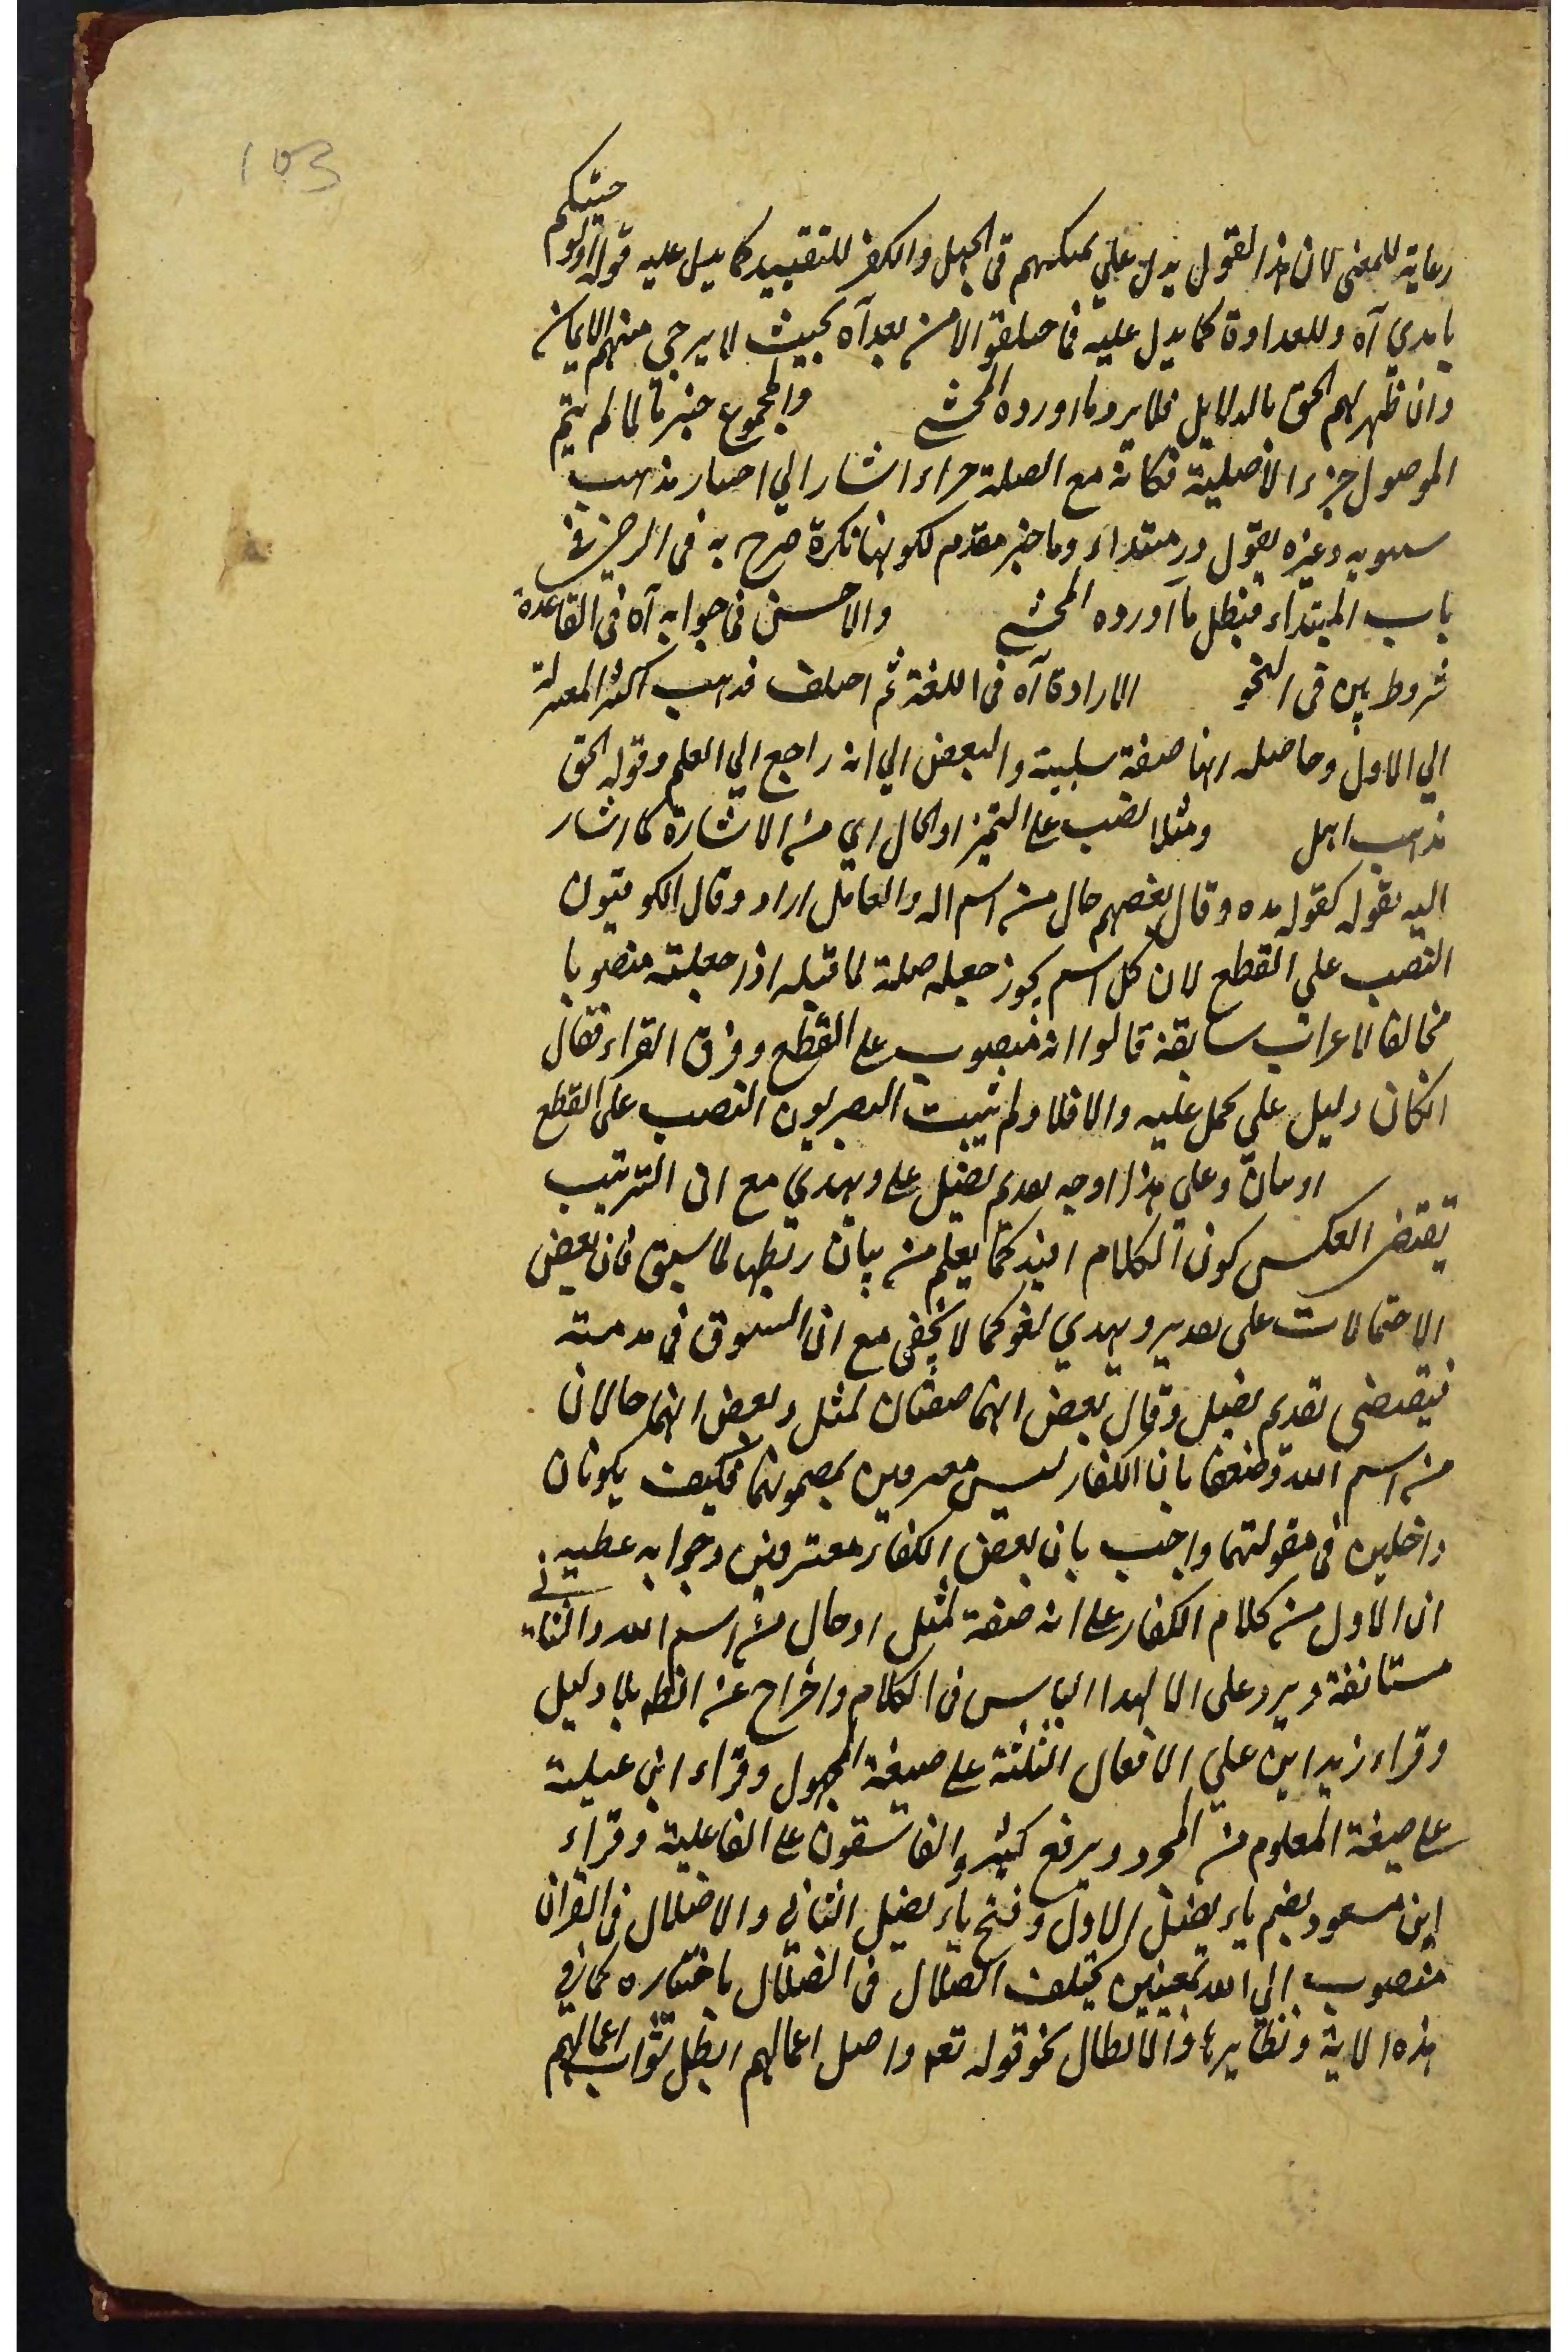 153
رعاية للمعنى لان هذا القول يدل علي تمكنهم في الجهل والكفر للتقييد كما يدل عليه قوله اولو جئتكم
باهدي آه وللعداوة كما يدل عليه فما اختلفوا الا من بعد آه بحيث لا يرجى منهم الايمان
وان ظهر لهم الحق بالدلايل فلا يرد ما اورده المحشي والمجموع خبر ما لما لم يتم
الموصول جزء الا بصلته فكانه مع الصلة جزء اشار الي اختيار مذهب
سيبويه وغيره يقول ذو مبتداء وما خبر مقدم لكونها نكرة صرح به في الرضي في
باب المبتداء فبطل ما اورده المحشي والاحسن في جوابه آه في القاعدة
شروط بين في النحو الارادة آه في اللغة ثم اختلف فذهب اكثر المعتزلة
الي الاول وحاصله انها صفة سلبية والبعض الي انه راجع الي العلم وقوله الحق
مذهب اهل ومثلا نصب على التميز او الحال اي من الاشارة كما اشار
اليه بقوله كقوله هذه وقال بعضهم حال من اسم الله والعامل اراد وقال الكوفيون
النصب علي القطع لان كل اسم يجوز جعله صلة لما قبله اذا جعلته منصوبا
مخالفا لاعراب سابقه قالوا انه منصوب على القطع وفرق الفراء فقال
ان كان دليل علي يحمل عليه والا فلا ولم يثبت البصريون النصب على القطع
او بيان وعلي هذا اوجه تقديم يضل على ويهدي مع ان الترتيب
يقتضي العكس كون الكلام فيه كما يعلم من بيان ربطها لما سبق فان بعض
الاحتمالات على تقدير ويهدي لغو كما لا يخفى مع ان السوق في مذمته
فيقتضى تقديم يضل وقال بعض انهما صفتان لمثل وبعض انهما حالان
من اسم الله وضعف بان الكفار ليس معترفين بمضمونهما فكيف يكونان
داخلين في مقولتهما واجيب بان بعض الكفار معترفين وجوابه عطية
ان الاول من كلام الكفار على انه صفة لمثل او حال من اسم الله والثاني
مستانفة ويرد على الالهدا الباس في الكلام واخراج عن النظم بلا دليل
وقراء زيد ابن علي الافعال الثلثة على صيغة المجهول وقراء ابن عبلية
على صيغة المعلوم من المجرد ويرفع كثير والفاسقون على الفاعلية وقراء
ابن مسعود بضم ياء يضل الاول وفتح ياء يضل الثاني والاضلال في القران
منصوب الي الله بمعنيين تخلف الضلال في الضلال باختياره كما في
هذه الاية ونظايرها والابطال نحو قوله تعه واضل اعمالهم ابطل ثواب اعمالهم